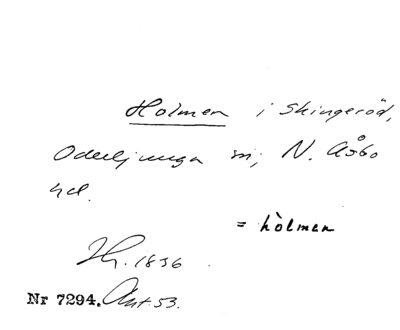 Holmen i Skingeröd,
Oderljunga sn, N. Åsbo
hd.
= hòlmen
1836
Nr 7294. Ant. 53.